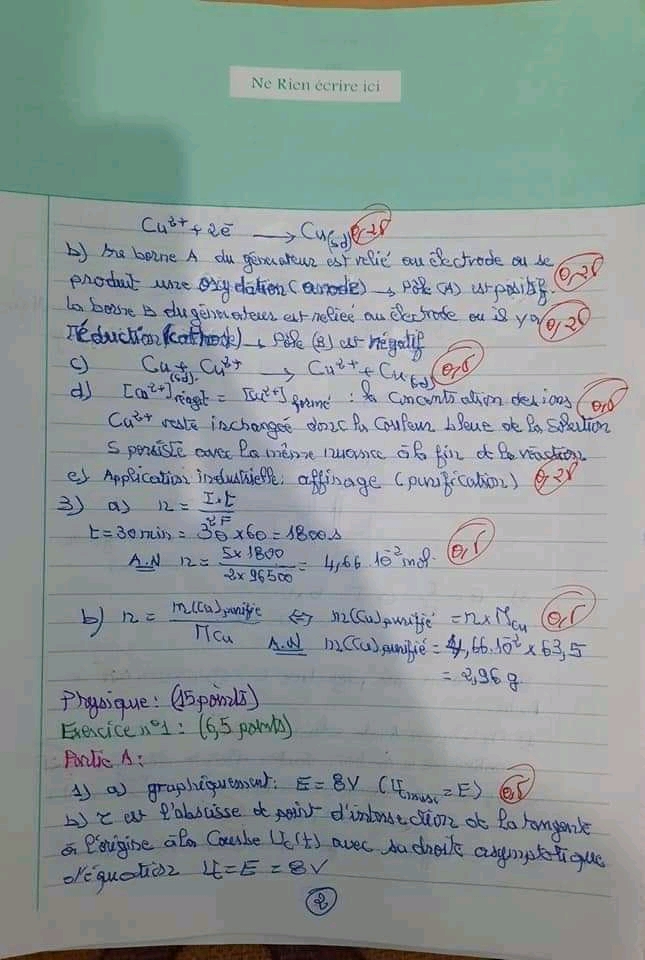 Ne Rien écrire ici
Cu²⁺ + 2e⁻ → Cu(sd) 0,25
b) La borne A du générateur est relié au électrode ou se
produit une oxydation (anode) → Pôle (A) est positif. 0,25
la borne B du générateurs est reliée au électrode ou il y a 0,25
réduction (cathode) → Pôle (B) est négatif
c) Cu(sd) + Cu²⁺ → Cu²⁺ + Cu(sd) 0,5
d) [Cu²⁺]réagit = [Cu²⁺]formé : la concentration des ions 0,5
Cu²⁺ reste inchangée donc la couleur bleue de la solution
S persiste avec la même nuance à la fin de la réaction
e) Application industrielle: affinage (purification) 0,25
3) a) n = I.t / 2F
t = 30min = 30 x 60 = 1800 s
A.N n = 5 x 1800 / 2 x 96500 = 4,66 10⁻² mol. 0,5
b) n = m(Cu)purifié / MCu ⇔ m(Cu)purifié = n x MCu 0,5
A.N m(Cu)purifié = 4,66.10⁻² x 63,5
= 2,96 g
Physique: (15 points)
Exercice n°1: (6,5 points)
Partie A:
1) a) graphiquement: E = 8V (Ucmax = E) 0,5
b) τ est l'abscisse de point d'intersection de la tangente
à l'origine à la courbe Uc(t) avec sa droite asymptotique
d'équation U = E = 8V
2